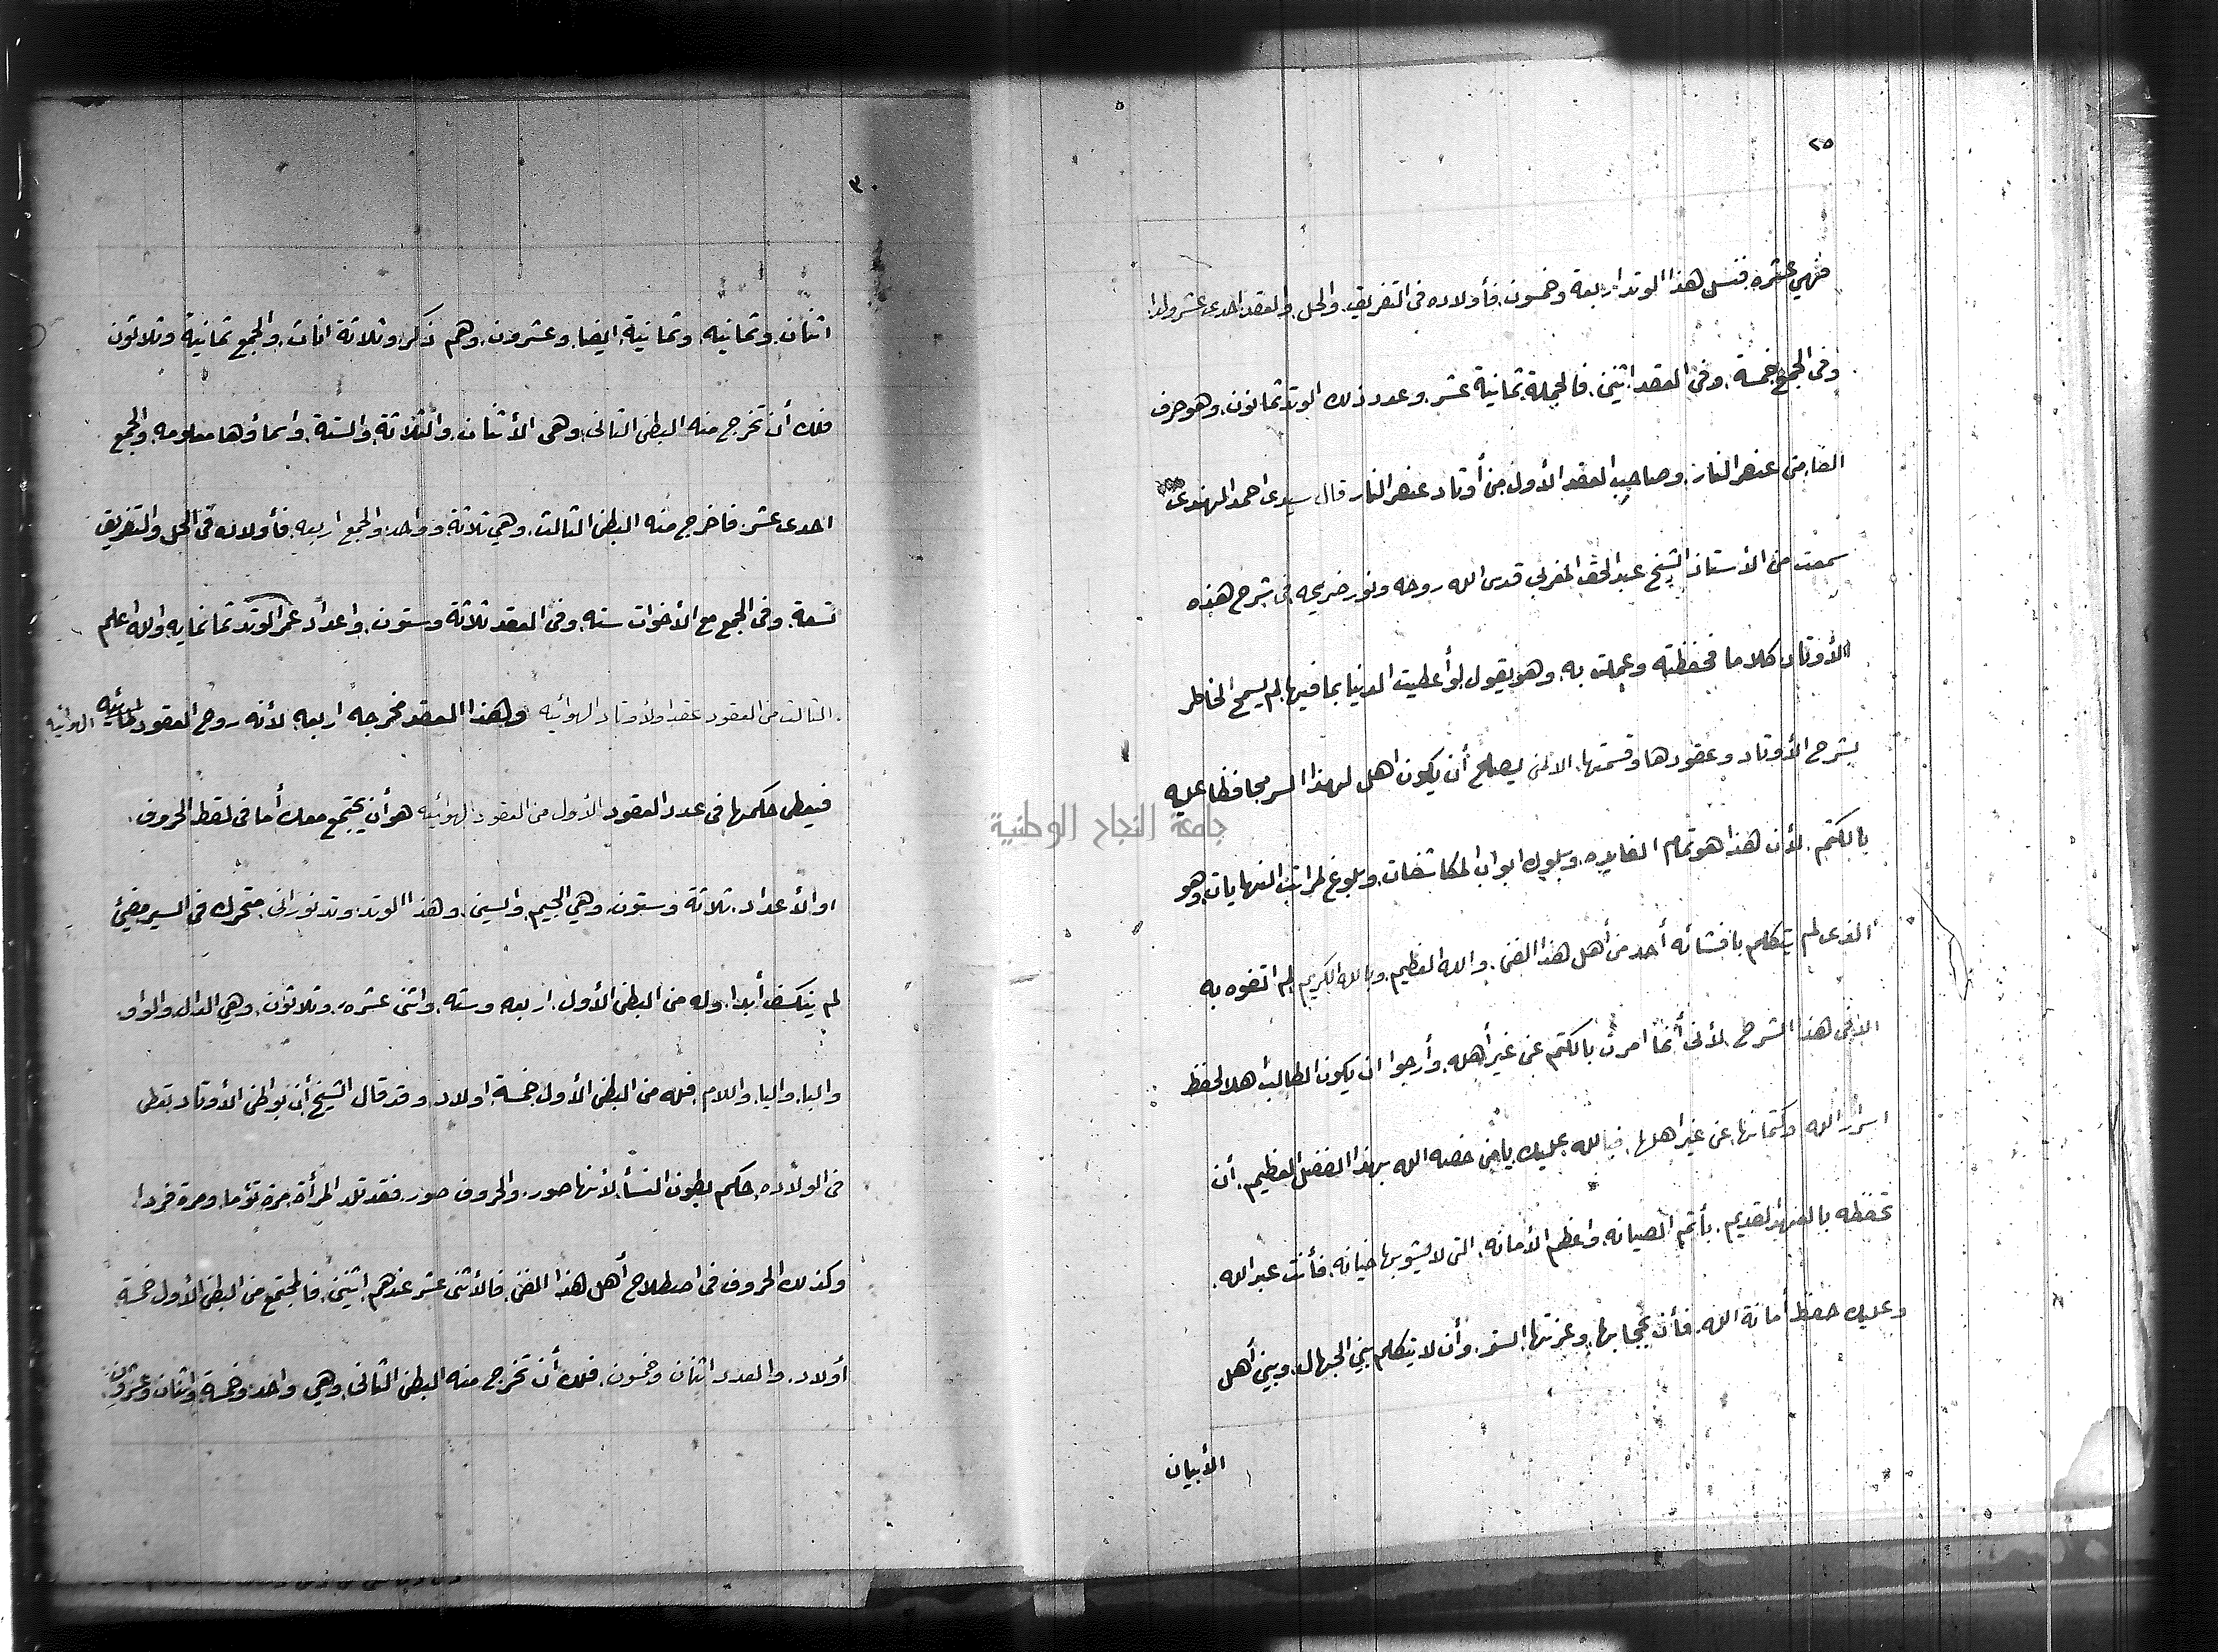 ٢٥
فهي عشره فنسل هذا الوتد اربعة وخمسون فأولاده فى التفريق والحل والعقد احدى عشر ولدا
وفى الجمع خمسة وفى العقد اثنين فالجملة ثمانية عشر وعدد ذلك الوتد ثمانون وهو حرف
الفا من عنصر النار وصاحب العقد الأول من أوتاد عنصر النار قال سيدى احمد المهندى
سمعت من الأستاذ الشيخ عبد الحق المغربى قدس الله روحه ونور ضريحه فى شرح هذه
الأوتاد كلاما فحفظته وعملت به وهو يقول لو أعطيت الدنيا بما فيها لم يسمح الخاطر
بشرح الأوتاد وعقودها وقسمتها الا لمن يصلح أن يكون اهل لهذا السر محافظا عليه
بالكتم لأن هذا هو تمام الفايده وسلوك ابواب المكاشفات وبلوغ لمراتب النهايات وهو
الذى لم يتكلم بافشائه أحد من أهل هذا الفن والله العظيم وبالله الكريم لم اتفوه به
الا فى هذا الشرح لأنى أنما امرت بالكتم عن غير أهله وأرجوا ان يكون الطالب اهلا لحفظ
اسرار الله وكتمانها عن غير اهلها فبالله عليك يا من خصه الله بهذا الفضل العظيم أن
تحفظه بالعهد القديم بأتم الصيانه واعظم الأمانه التى لا يشوبها خيانه فأنت عبد الله
وعليك حفظ أمانة الله فأن حجابها وعزتها الستر وأن لا يتكلم بين الجهال وبين أهل
الأبيان
٣٠
اثنان وثمانيه وثمانية ايضا وعشرون وهم ذكر وثلاثة اناث والجمع ثمانية وثلاثون
فلك أن تخرج منه البطن الثانى وهى الأثنان والثلاثة والستة واسماؤها معلومه والجمع
احدى عشر فاخرج منه البطن الثالث وهي ثلاثة وواحد والجمع اربعه فأولاده فى الحل والتفريق
تسعة وفى الجمع مع الأخوات سته وفى العقد ثلاثة وستون واعداد عمر الوتد ثمانمايه والله اعلم
الثالث من العقود عقد اولأوتاد الهوائيه ولهذا العقد مخرجه اربعه لأنه روح العقود المائيه الهوائيه
فيعطى حكمها فى عدد العقود الأول من العقود الهوائيه هو أن يجتمع معك أما فى لقط الحروف
او الأعداد ثلاثة وستون وهي الجيم والسين وهذا الوتد وتد نورانى متحرك فى السير مضيئ
لم ينكسف أبدا وله من البطن الأول اربعه وسته واثنى عشره وثلاثون وهي الدال والواو
والبا واليا واللام فله من البطن الأول خمسة اولاد وقد قال الشيخ أن بواطن الأوتاد تعطى
فى الولاده حكم بطون النسأ لأنها صور والحروف صور فقد تلد المرأة مرة تؤما ومرة فردا
وكذلك الحروف فى اصطلاح أهل هذا الفن فالأثنى عشر عندهم اثنين فالمجتمع من البطن الأول خمسة
أولاد والعدد اثنان وخمسون فلك أن تخرج منه البطن الثانى وهي واحد وخمسة واثنان وعشرون
جامعة النجاح الوطنية